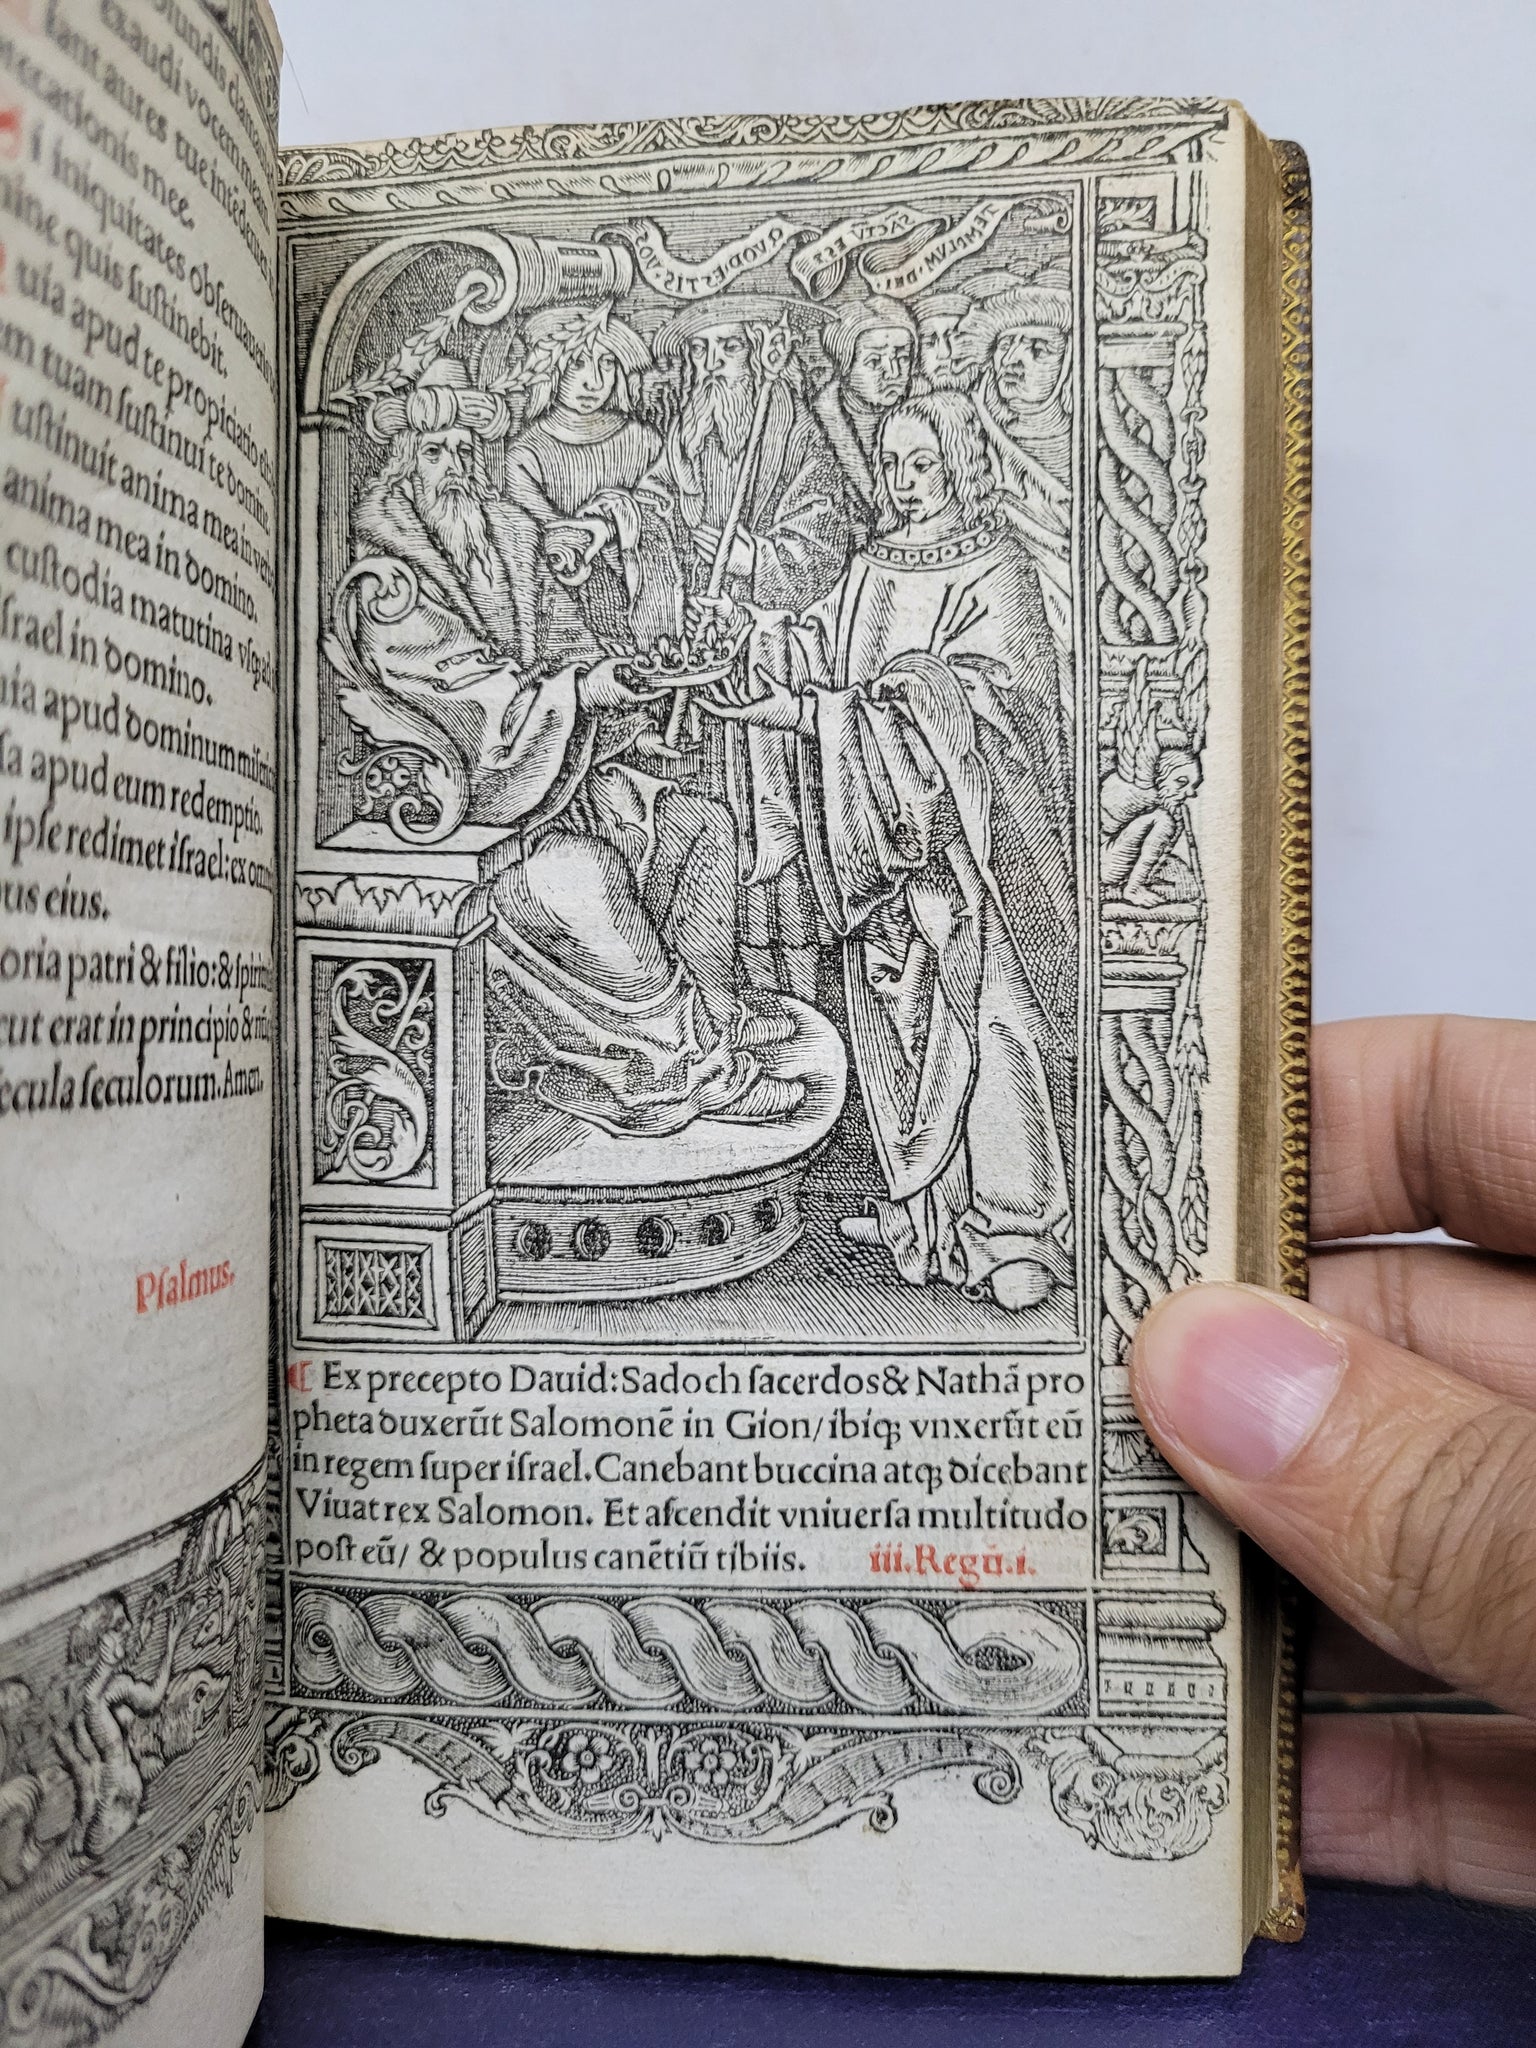 exaudi vocem meam.
iant aures tue intēdentes
precationis mee.
i iniquitates obseruaueris
mine quis sustinebit.
uia apud te propiciatio est:
em tuam sustinui te domine.
ustinuit anima mea in verbo
anima mea in domino.
custodia matutina vsq̃ ad
israel in domino.
uia apud dominum miseri
sa apud eum redemptio.
ipse redimet israel: ex omni
bus eius.
oria patri & filio: & spiritui
cut erat in principio & nūc
secula seculorum. Amen.
Psalmus.
TEMPLVM · DEI ·
SĀCTV̄ EST
QVOD · ESTIS · VOS
Ex precepto Dauid: Sadoch sacerdos & Nathā pro
pheta duxerūt Salomonē in Gion/ ibiqꝫ vnxerūt eū
in regem super israel. Canebant buccina atqꝫ dicebant
Viuat rex Salomon. Et ascendit vniuersa multitudo
post eū/ & populus canētiū tibiis. iii. Regū. i.